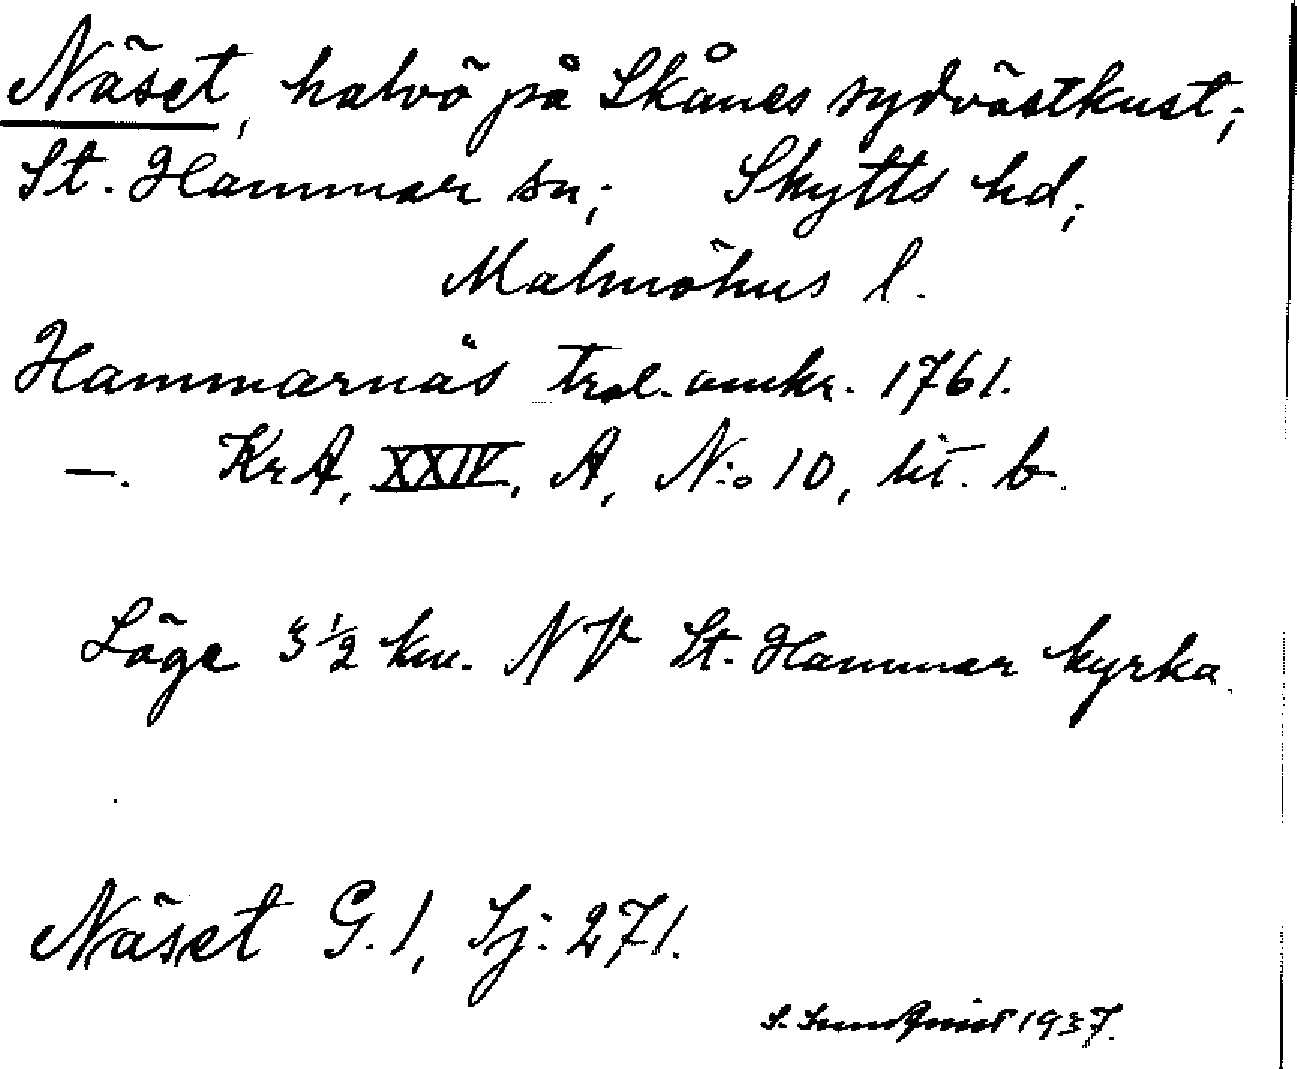 Näset, halvö på Skånes sydvästkust;
St. Hammar sn; Skytts hd;
Malmöhus l.
Hammarnäs trol. omkr. 1761.
—. KrA, XXIV, A, N:o 10, lit. b.
Läge 3 1/2 km. NV St. Hammar kyrka.
Näset G. 1, Sj: 271.
S. Sundqvist 1937.